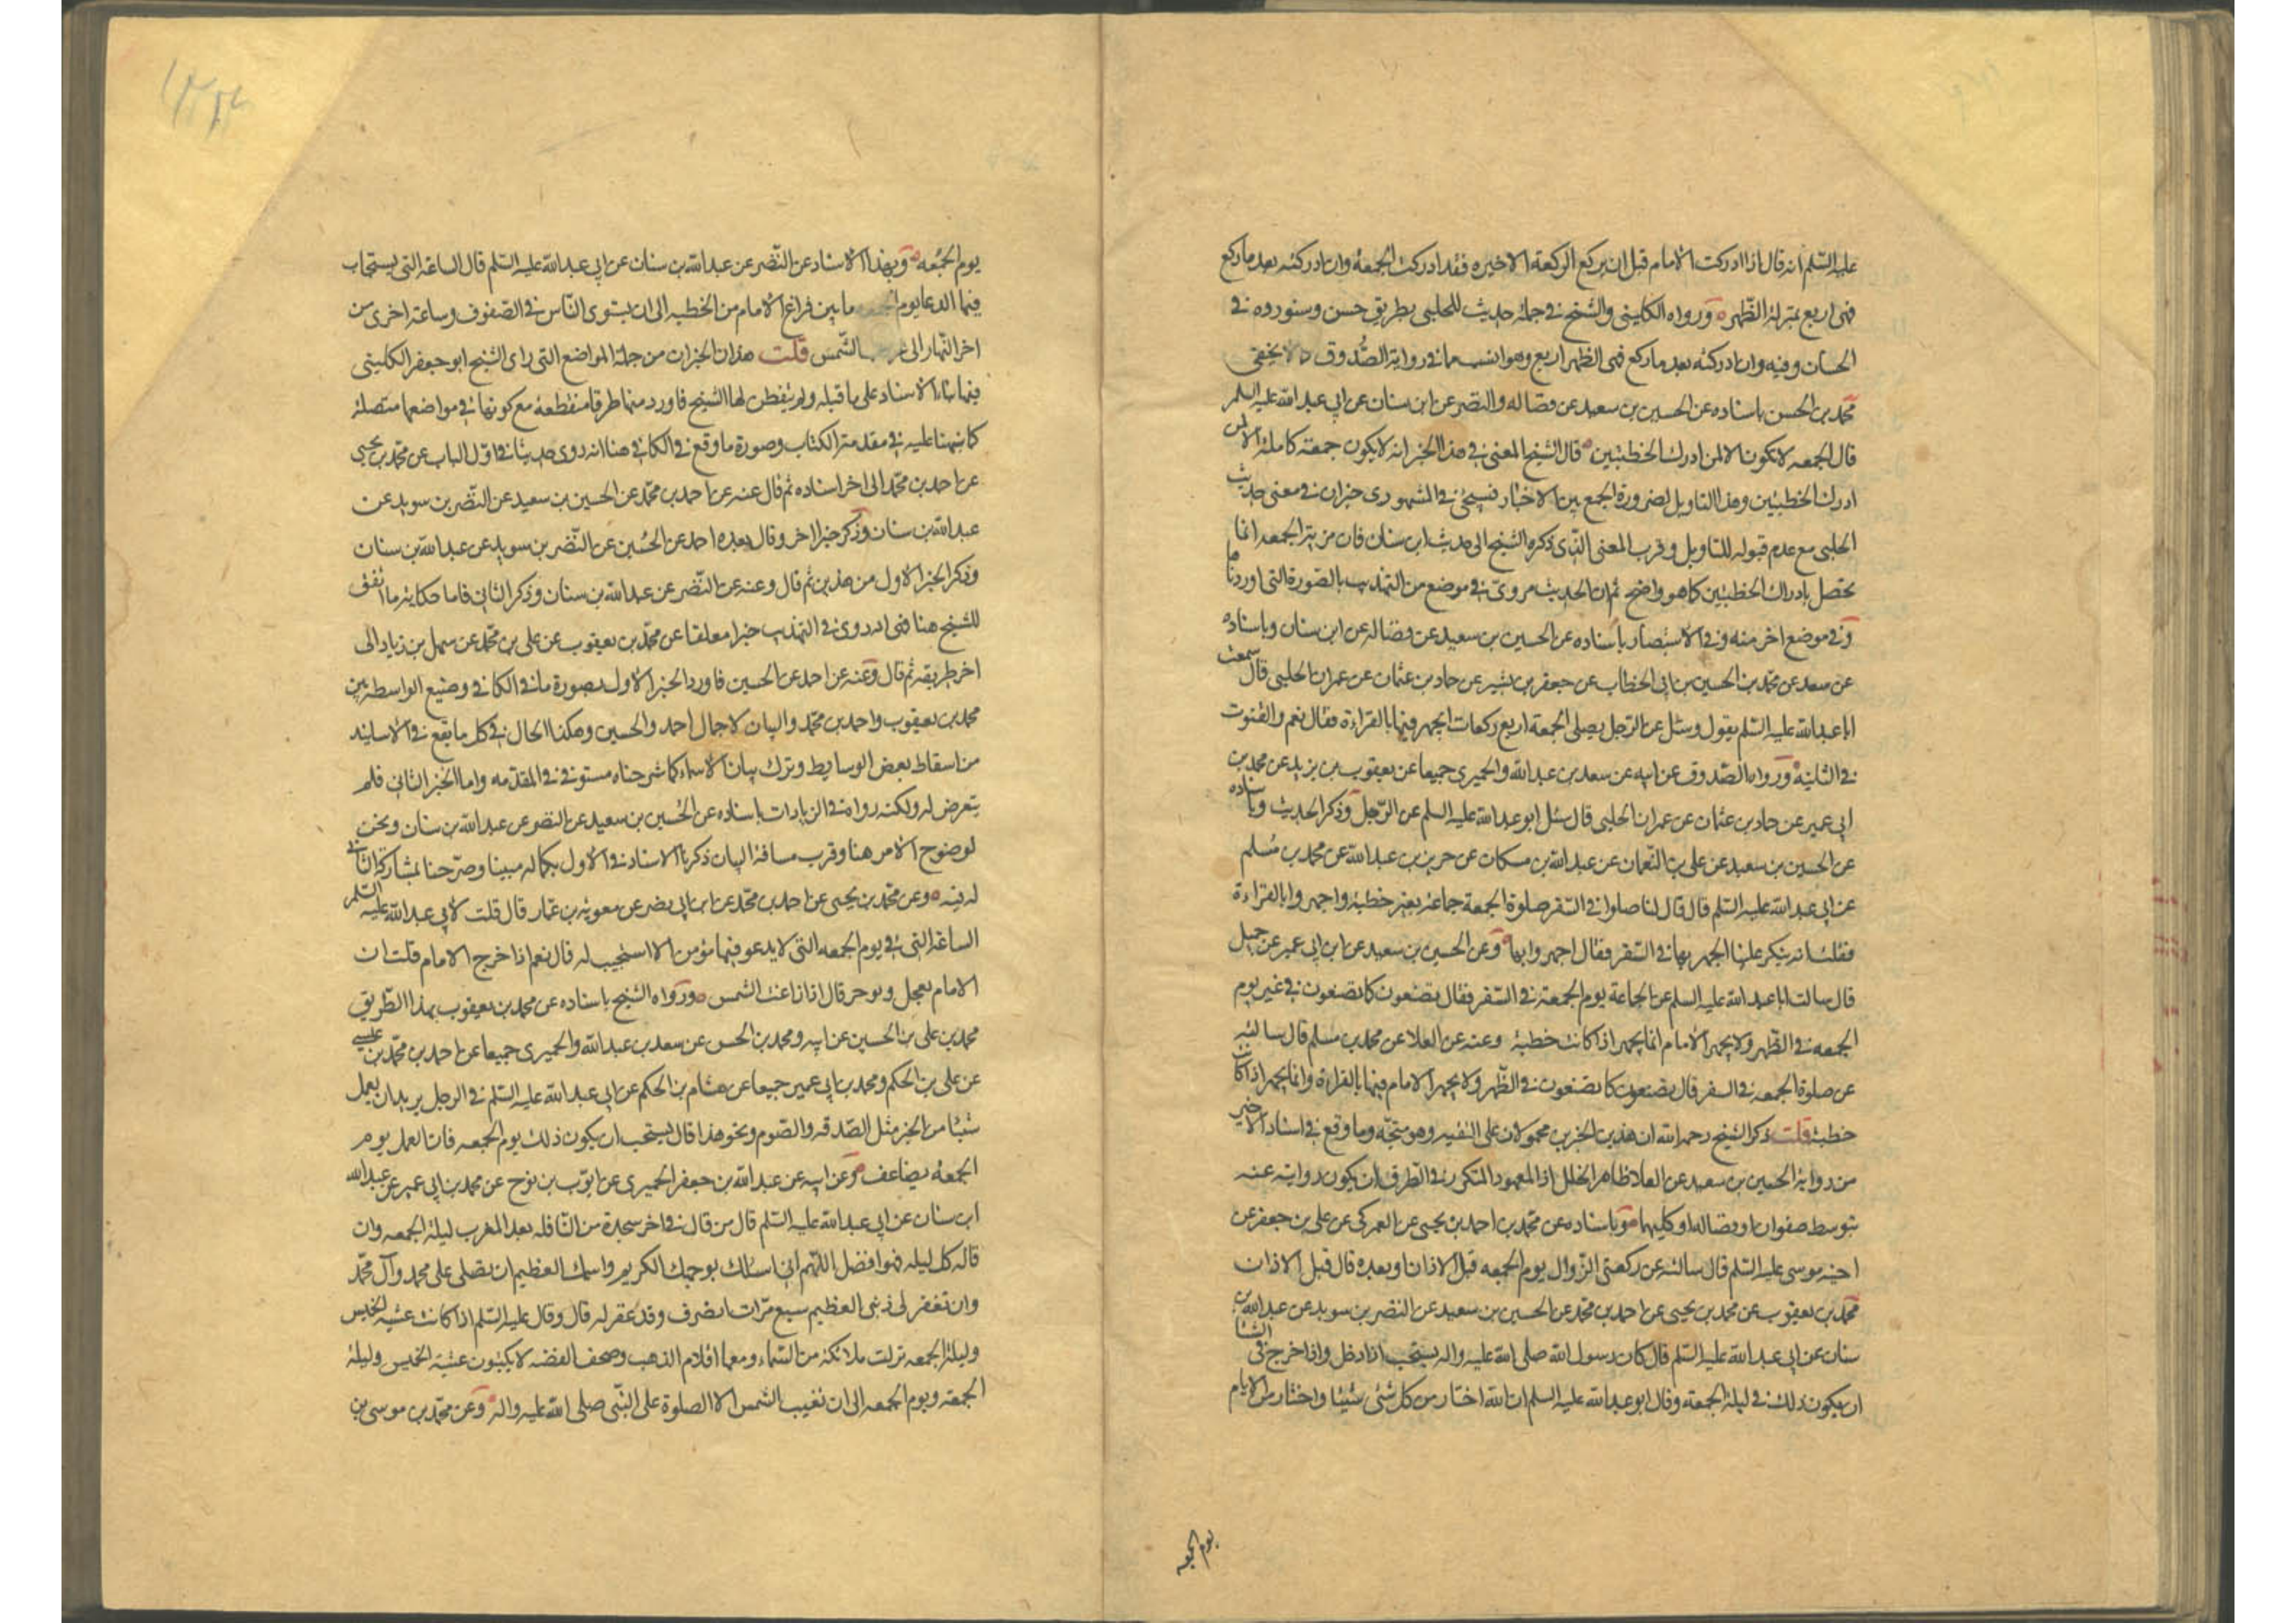 عليه السلم انه قال اذا ادركت الامام قبل ان يركع الركعة الاخيره فقد ادركت الجمعة وان ادركته بعد ما ركع
فهى اربع بمنزلة الظهر ورواه الكلينى والشيخ فى جملة حديث للحلبى بطريق حسن وسنورده فى
الحسان وفيه وان ادركته بعد ما ركع فهى الظهر اربع وهو انسب مما فى رواية الصدوق كما لا يخفى
محمد بن الحسن باسناده عن الحسين بن سعيد عن فضاله والنضر عن ابن سنان عن ابى عبد الله عليه السلم
قال الجمعه لا تكون الا لمن ادرك الخطبتين قال الشيخ المعنى فى هذا الخبر انه لا يكون جمعته كاملة الا لمن
ادرك الخطبتين وهذا التاويل لضرورة الجمع بين الاخبار فسيجئ فى المشهورى خبران فى معنى حديث
الحلبى مع عدم قبوله للتاويل وقرب المعنى الذى ذكره الشيخ الى حديث ابن سنان فان مزية الجمعه انما
تحصل بادراك الخطبتين كما هو واضح ثم ان الحديث مروى فى موضع من التهذيب بالصورة التى اوردناها
وفى موضع اخر منه وفى الاستبصار باسناده عن الحسين بن سعيد عن فضاله عن ابن سنان وباسناده
عن سعد عن محمد بن الحسين بن ابى الخطاب عن جعفر بن بشير عن حماد بن عثمان عن عمران الحلبى قال سمعت
ابا عبد الله عليه السلم يقول وسئل عن الرجل يصلى الجمعة اربع ركعات ايجهر فيها بالقراءة فقال نعم والقنوت
فى الثانية ورواه الصدوق عن ابيه عن سعد بن عبد الله والحميرى جميعا عن يعقوب بن يزيد عن محمد بن
ابى عمير عن حماد بن عثمان عن عمران الحلبى قال سئل ابو عبد الله عليه السلم عن الرجل وذكر الحديث وباسناده
عن الحسين بن سعيد عن على بن النعمان عن عبد الله بن مسكان عن حريز بن عبد الله عن محمد بن مسلم
عن ابى عبد الله عليه السلم قال قال لنا صلوا فى السفر صلوة الجمعة جماعة بغير خطبة واجهروا بالقراءة
فقلت انه ينكر علينا الجهر بها فى السفر فقال اجهروا بها وعن الحسين بن سعيد عن ابن ابى عمير عن جميل
قال سالت ابا عبد الله عليه السلم عن الجماعة يوم الجمعة فى السفر فقال يصنعون كما يصنعون فى غير يوم
الجمعه فى الظهر ولا يجهر الامام انما يجهر اذا كانت خطبة وعنه عن العلا عن محمد بن مسلم قال سالته
عن صلوة الجمعه فى السفر قال يصنعون كما يصنعون فى الظهر ولا يجهر الامام فيها بالقراءة وانما يجهر اذا كانت
خطبة قلت ذكر الشيخ رحمه الله ان هذين الخبرين محمولان على التقيه وهو متجه وما وقع فى اسناد الاخير
من رواية الحسين بن سعيد عن العلا ظاهر الخلل اذ المعهود المتكرر فى الطرق ان يكون روايته عنه
بتوسط صفوان او فضاله او كليهما وباسناده عن محمد بن احمد بن يحيى عن العمركى عن على بن جعفر عن
اخيه موسى عليه السلم قال سالته عن ركعتى الزوال يوم الجمعه قبل الاذان او بعده قال قبل الاذان
محمد بن يعقوب عن محمد بن يحيى عن احمد بن محمد عن الحسين بن سعيد عن النضر بن سويد عن عبد الله بن
سنان عن ابى عبد الله عليه السلم قال كان رسول الله صلى الله عليه واله يستحب اذا دخل واذا خرج فى الشتا
ان يكون ذلك فى ليلة الجمعة وقال ابو عبد الله عليه السلم ان الله اختار من كل شئى شيئا واختار من الايام
يوم الجمعه
يوم الجمعه وبهذا الاسناد عن النضر عن عبد الله بن سنان عن ابى عبد الله عليه السلم قال الساعة التى يستجاب
فيها الدعا يوم الجمعه ما بين فراغ الامام من الخطبه الى ان يستوى الناس فى الصفوف وساعة اخرى من
اخر النهار الى الشمس قلت هذان الخبران من جملة المواضع التى راى الشيخ ابو جعفر الكلينى
فيها بناء الاسناد على ما قبله ولم يتفطن لها الشيخ فاورد منها طرقا منقطعة مع كونها فى مواضعها متصلة
كما نبهنا عليه فى مقدمة الكتاب وصورة ما وقع فى الكافى هنا انه روى حديثا فى اول الباب عن محمد بن يحيى
عن احمد بن محمد الى اخر اسناده ثم قال عنه عن احمد بن محمد عن الحسين بن سعيد عن النضر بن سويد عن
عبد الله بن سنان وذكر خبرا اخر وقال بعده احمد عن الحسين عن النضر بن سويد عن عبد الله بن سنان
وذكر الخبر الاول من هذين ثم قال وعنه عن النضر عن عبد الله بن سنان وذكر الثانى فاما حكاية ما اتفق
للشيخ هنا فهى انه روى فى التهذيب خبرا معلقا عن محمد بن يعقوب عن على بن محمد عن سهل بن زياد الى
اخر طريقه ثم قال وعنه عن احمد عن الحسين فاورد الخبر الاول بصورة ما فى الكافى وضيع الواسطة بين
محمد بن يعقوب واحمد بن محمد والبيان لاجمال احمد والحسين وهكذا الحال فى كل ما يقع فى الاسانيد
من اسقاط بعض الوسايط وترك بيان الاسماء كما شرحناه مستوفى فى المقدمه واما الخبر الثانى فلم
يتعرض له ولكنه رواه فى الزيادات باسناده عن الحسين بن سعيد عن النضر عن عبد الله بن سنان ونحن
لوضوح الامر هنا وقرب مسافة البيان ذكرنا الاسناد فى الاول بكماله مبينا وصرحنا بمشاركة الثانى
له فيه وعن محمد بن يحيى عن احمد بن محمد عن ابن ابى نصر عن معويه بن عمار قال قلت لابى عبد الله عليه السلم
الساعة التى فى يوم الجمعه التى لا يدعو فيها مؤمن الا استجيب له قال نعم اذا خرج الامام قلت ان
الامام يعجل ويوخر قال اذا زاغت الشمس ورواه الشيخ باسناده عن محمد بن يعقوب بهذا الطريق
محمد بن على بن الحسين عن ابيه ومحمد بن الحسن عن سعد بن عبد الله والحميرى جميعا عن احمد بن محمد بن عيسى
عن على بن الحكم ومحمد بن ابى عمير جميعا عن هشام بن الحكم عن ابى عبد الله عليه السلم فى الرجل يريد ان يعمل
شيئا من الخير مثل الصدقه والصوم ونحو هذا قال يستحب ان يكون ذلك يوم الجمعه فان العمل يوم
الجمعة يضاعف وعن ابيه عن عبد الله بن جعفر الحميرى عن ايوب بن نوح عن محمد بن ابى عمير عن عبد الله
ابن سنان عن ابى عبد الله عليه السلم قال من قال فى اخر سجدة من النافله بعد المغرب ليلة الجمعه وان
قاله كل ليله فهو افضل اللهم انى اسئلك بوجهك الكريم واسمك العظيم ان تصلى على محمد وآل محمد
وان تغفر لى ذنبى العظيم سبع مرات انصرف وقد غفر له قال وقال عليه السلم اذا كانت عشية الخميس
وليلة الجمعه نزلت ملائكة من السماء ومعها اقلام الذهب وصحف الفضه لا يكتبون عشية الخميس وليلة
الجمعة ويوم الجمعه الى ان تغيب الشمس الا الصلوة على النبى صلى الله عليه واله وعن محمد بن موسى بن